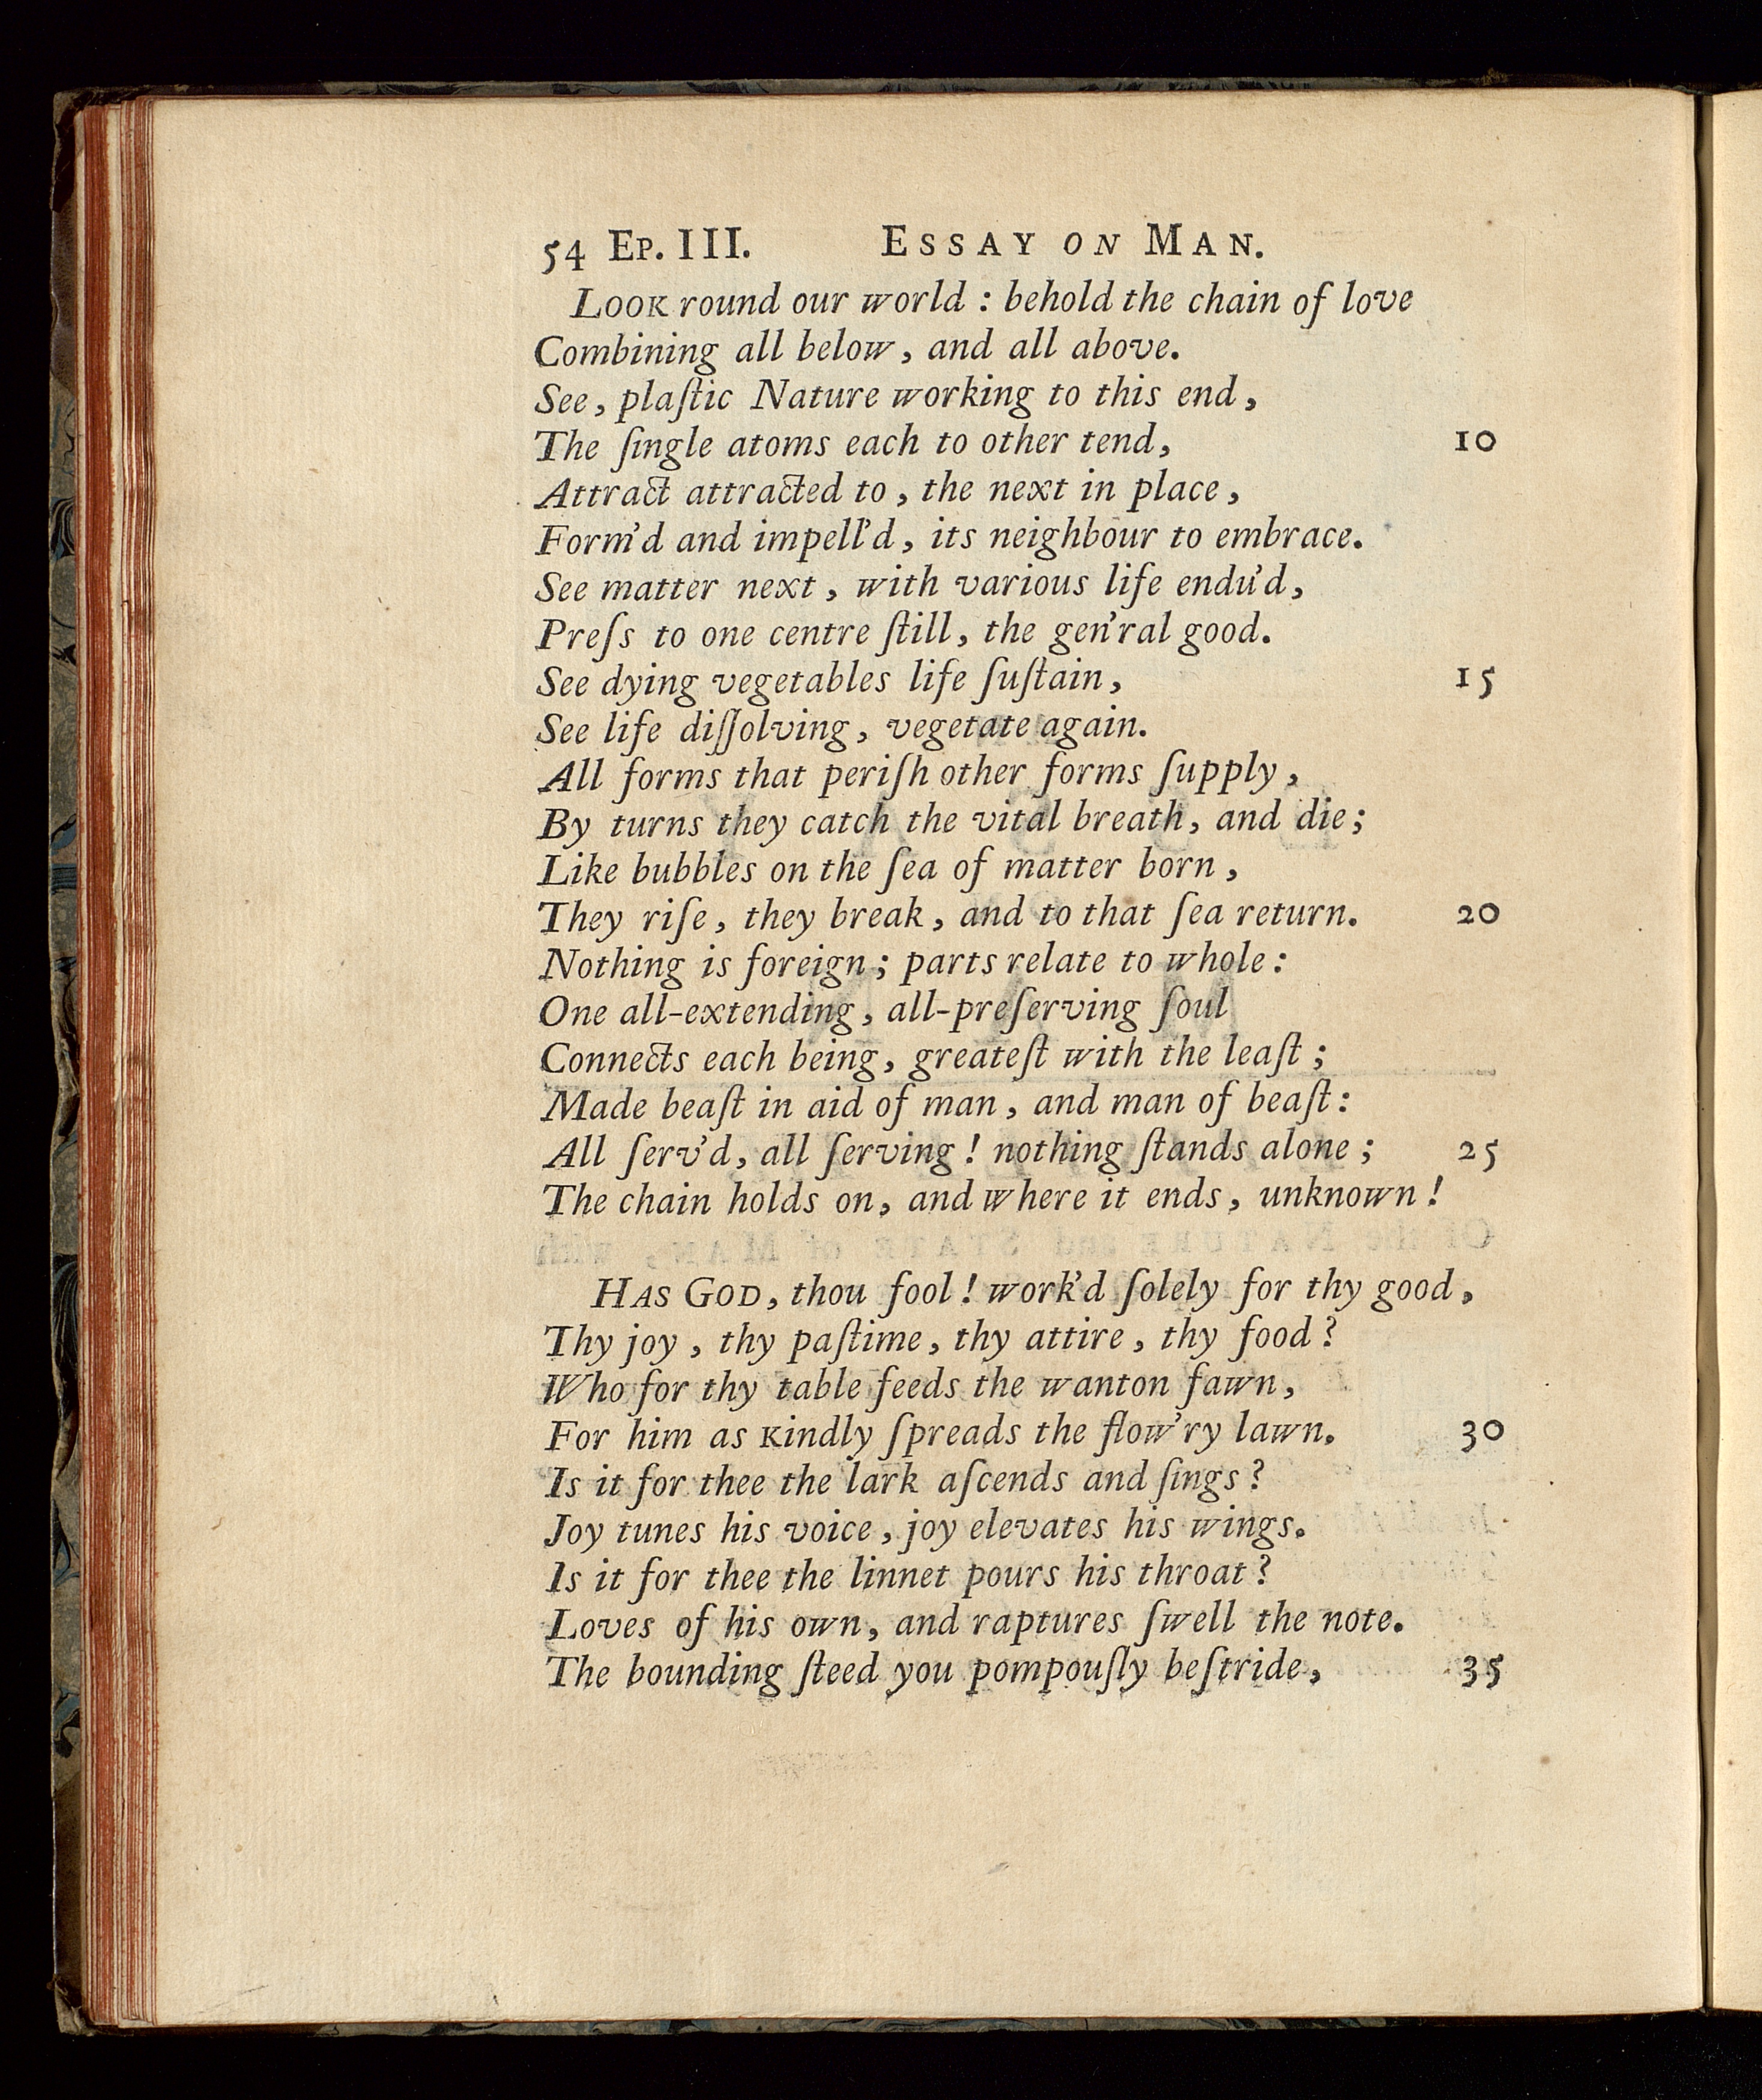 54 EP. III. ESSAY ON MAN.
LOOK round our world : behold the chain of love
Combining all below, and all above.
See, plaſtic Nature working to this end,
The ſingle atoms each to other tend, 10
Attract attracted to, the next in place,
Form'd and impell'd, its neighbour to embrace.
See matter next, with various life endu'd,
Preſs to one centre ſtill, the gen'ral good.
See dying vegetables life ſuſtain, 15
See life diſſolving, vegetate again.
All forms that periſh other forms ſupply,
By turns they catch the vital breath, and die;
Like bubbles on the ſea of matter born,
They riſe, they break, and to that ſea return. 20
Nothing is foreign; parts relate to whole:
One all-extending, all-preſerving ſoul
Connects each being, greateſt with the leaſt;
Made beaſt in aid of man, and man of beaſt:
All ſerv'd, all ſerving! nothing ſtands alone; 25
The chain holds on, and where it ends, unknown!
HAS GOD, thou fool! work'd ſolely for thy good,
Thy joy, thy paſtime, thy attire, thy food?
Who for thy table feeds the wanton fawn,
For him as kindly ſpreads the flow'ry lawn. 30
Is it for thee the lark aſcends and ſings?
Joy tunes his voice, joy elevates his wings.
Is it for thee the linnet pours his throat?
Loves of his own, and raptures ſwell the note.
The bounding ſteed you pompouſly beſtride, 35